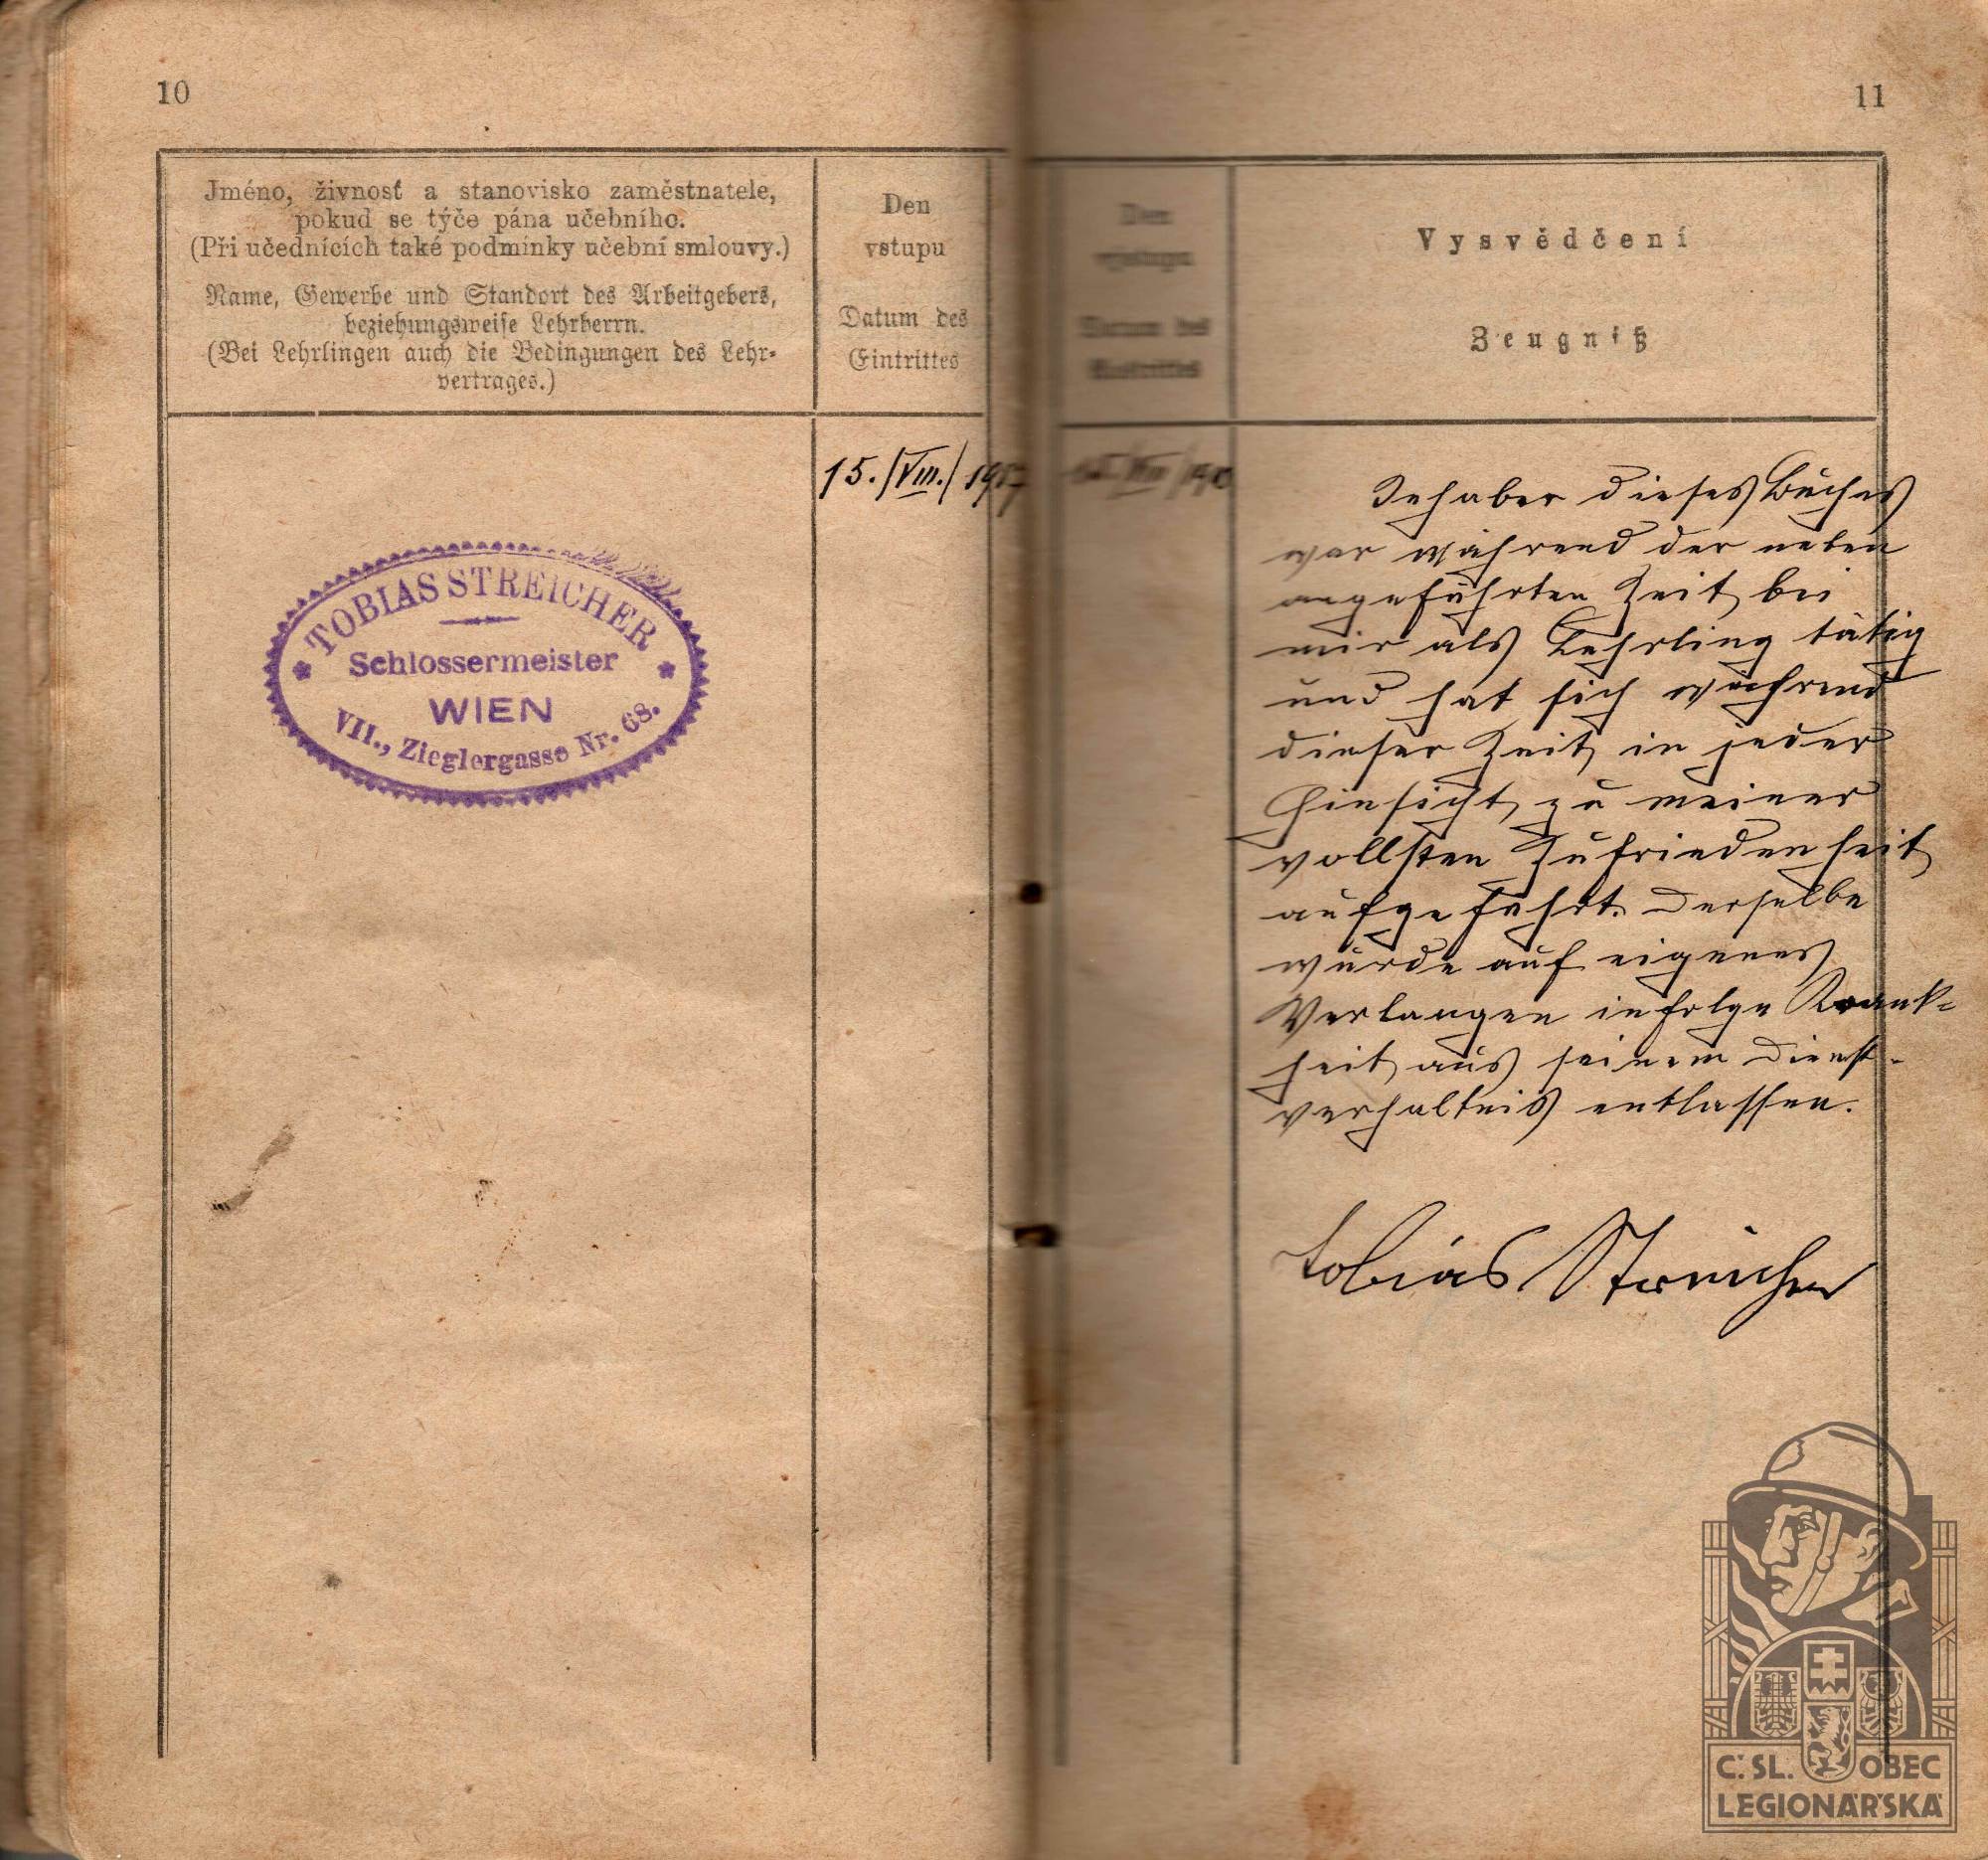 10
Jméno, živnosť a stanovisko zaměstnatele,
pokud se týče pána učebního.
(Při učednících také podmínky učební smlouvy.)
Name, Gewerbe und Standort des Arbeitgebers,
beziehungsweise Lehrherrn.
(Bei Lehrlingen auch die Bedingungen des Lehr-
vertrages.)
Den
vstupu
Datum des
Eintrittes
15./VIII./1907
TOBIAS STREICHER
Schlossermeister
WIEN
VII., Zieglergasse Nr. 68.
11
Den
Datum des
Vysvědčení
Zeugniß
Inhaber dieses Buches
war während der neben
angeführten Zeit bei
mir als Lehrling tätig
und hat sich während
dieser Zeit in jeder
Hinsicht zu meiner
vollsten Zufriedenheit
aufgeführt. Derselbe
wurde auf eigenes
Verlangen infolge Krank=
heit aus seinem Dienst-
verhältnis entlassen.
Tobias Streicher
Č.SL. OBEC
LEGIONÁŘSKÁ